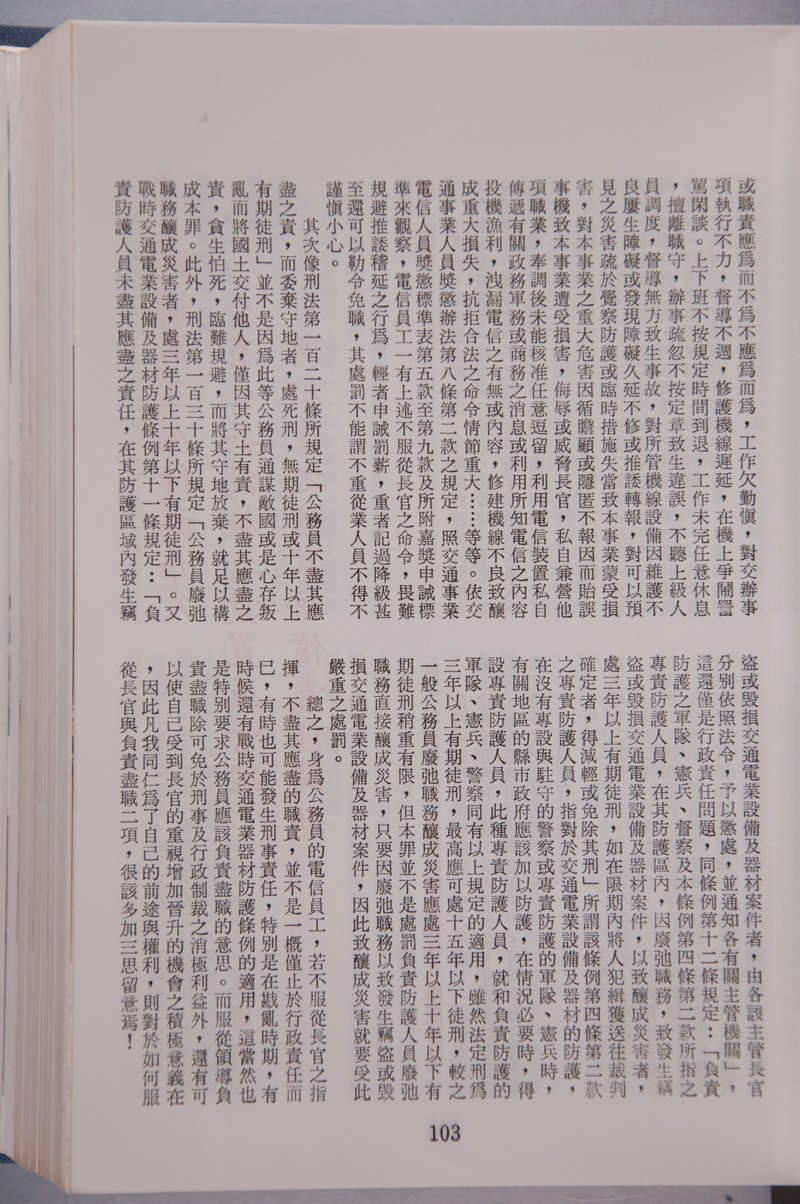 或職責應爲而不爲不應爲而爲，工作欠勤愼，對交辦事
項執行不力，督導不週，修護機線遲延，在機上爭鬧詈
駡閑談。上下班不按規定時間到退，工作未完任意休息
，擅離職守，辦事疏忽不按定章致生違誤，不聽上級人
員調度，督導無方致生事故，對所管機線設備因維護不
良屢生障礙或發現障礙久延不修或推諉轉報，對可以預
見之災害疏於覺察防護或臨時措施失當致本事業蒙受損
害，對本事業之重大危害因循瞻顧或隱匿不報因而貽誤
事機致本事業遭受損害，侮辱或威脅長官，私自兼營他
項職業，奉調後未能核准任意逗留，利用電信裝置私自
傳遞有關政務軍務或商務之消息或利用所知電信之內容
投機漁利，洩漏電信之有無或內容，修建機線不良致釀
成重大損失，抗拒合法之命令情節重大……等等。依交
通事業人員獎懲辦法第八條第二款之規定，照交通事業
電信人員獎懲標準表第五款至第九款及所附嘉獎申誡標
準來觀察，電信員工一有上述不服從長官之命令，畏難
規避推諉稽延之行爲，輕者申誡罰薪，重者記過降級甚
至還可以勒令免職，其處罰不能謂不重從業人員不得不
謹愼小心。
其次像刑法第一百二十條所規定「公務員不盡其應
盡之責，而委棄守地者，處死刑，無期徒刑或十年以上
有期徒刑」並不是因爲此等公務員通謀敵國或是心存叛
亂而將國土交付他人，僅因其守土有責，不盡其應盡之
責，貪生怕死，臨難規避，而將其守地放棄，就足以構
成本罪。此外，刑法第一百三十條所規定「公務員廢弛
職務釀成災害者，處三年以上十年以下有期徒刑」。又
戰時交通電業設備及器材防護條例第十一條規定：「負
責防護人員未盡其應盡之責任，在其防護區域內發生竊
盜或毀損交通電業設備及器材案件者，由各該主管長官
分別依照法令，予以懲處，並通知各有關主管機關」，
這還僅是行政責任問題，同條例第十二條規定：「負責
防護之軍隊、憲兵、督察及本條例第四條第二款所指之
專責防護人員，在其防護區內，因廢弛職務，致發生竊
盜或毀損交通電業設備及器材案件，以致釀成災害者，
處三年以上有期徒刑，如在限期內將人犯緝獲送往裁判
確定者，得減輕或免除其刑」所謂該條例第四條第二款
之專責防護人員，指對於交通電業設備及器材的防護，
在沒有專設與駐守的警察或專責防護的軍隊、憲兵時，
有關地區的縣市政府應該加以防護，在情況必要時，得
設專責防護人員，此種專責防護人員，就和負責防護的
軍隊、憲兵、警察同有以上規定的適用，雖然法定刑爲
三年以上有期徒刑，最高應可處十五年以下徒刑，較之
一般公務員廢弛職務釀成災害應處三年以上十年以下有
期徒刑稍重有限，但本罪並不是處罰負責防護人員廢弛
職務直接釀成災害，只要因廢弛職務以致發生竊盜或毀
損交通電業設備及器材案件，因此致釀成災害就要受此
嚴重之處罰。
總之，身爲公務員的電信員工，若不服從長官之指
揮，不盡其應盡的職責，並不是一概僅止於行政責任而
已，有時也可能發生刑事責任，特別是在戡亂時期，有
時候還有戰時交通電業器材防護條例的適用，這當然也
是特別要求公務員應該負責盡職的意思。而服從領導負
責盡職除可免於刑事及行政制裁之消極利益外，還有可
以使自己受到長官的重視增加晉升的機會之積極意義在
，因此凡我同仁爲了自己的前途與權利，則對於如何服
從長官與負責盡職二項，很該多加三思留意焉！
103